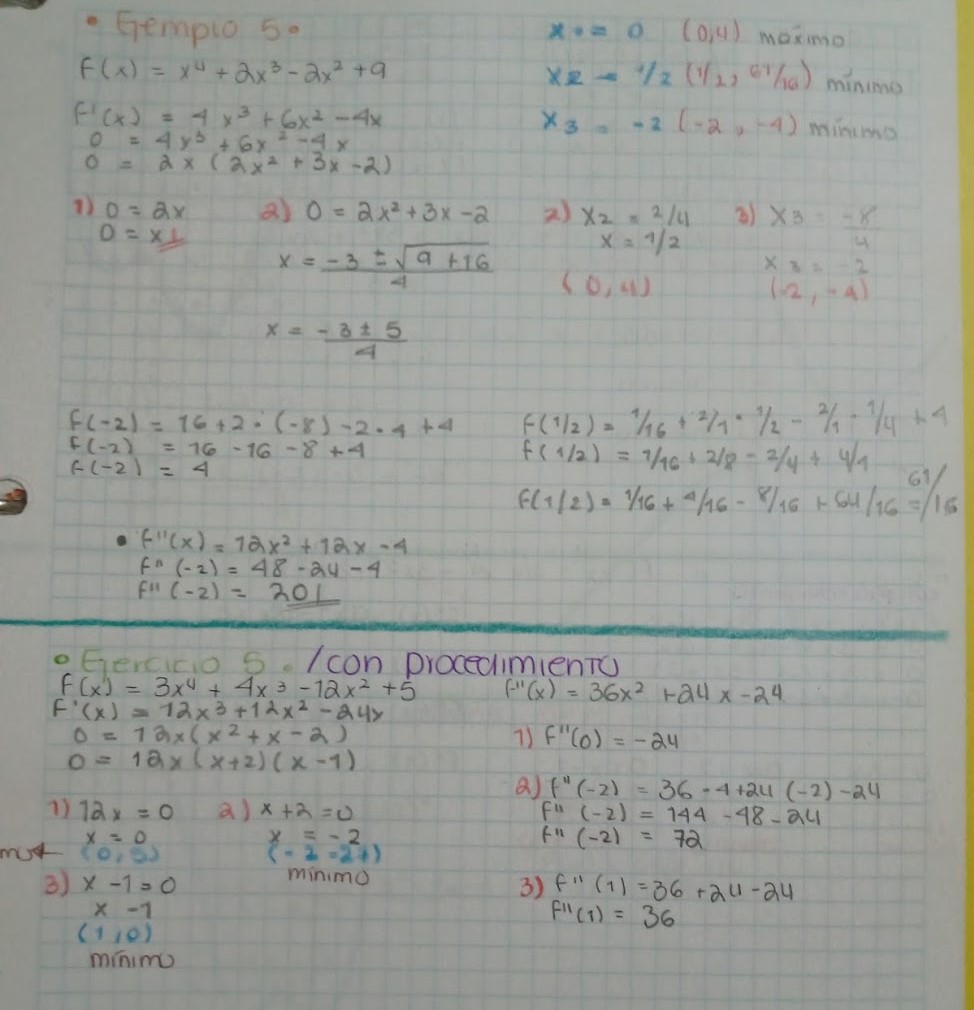 • Ejemplo 5•
f(x) = x⁴ + 2x³ - 2x² + 9
f'(x) = 4x³ + 6x² - 4x
0 = 4x³ + 6x² - 4x
0 = 2x (2x² + 3x - 2)
x = 0 (0,4) máximo
x2 = 1/2 (1/2, 61/16) mínimo
x3 = -2 (-2, -4) mínimo
1) 0 = 2x
0 = x
2) 0 = 2x² + 3x - 2
x = -3 ± √9 + 16 / 4
x = -3 ± 5 / 4
2) x2 = 2/4
x = 1/2
(0,4)
3) x3 = -8/4
x3 = -2
(-2, -4)
f(-2) = 16 + 2 · (-8) - 2 · 4 + 4
f(-2) = 16 - 16 - 8 + 4
f(-2) = 4
f(1/2) = 1/16 + 2/1 · 1/2 - 2/1 · 1/4 + 4
f(1/2) = 1/16 + 2/8 - 2/4 + 4/1
f(1/2) = 1/16 + 4/16 - 8/16 + 64/16 = 61/16
• f''(x) = 12x² + 12x - 4
f''(-2) = 48 - 24 - 4
f''(-2) = 20
• Ejercicio 5. /con procedimiento
f(x) = 3x⁴ + 4x³ - 12x² + 5
f'(x) = 12x³ + 12x² - 24x
0 = 12x (x² + x - 2)
0 = 12x (x+2)(x-1)
1) 12x = 0
x = 0
(0,5)
2) x + 2 = 0
x = -2
(-2 -27)
mínimo
3) x - 1 = 0
x -1
(1,0)
mínimo
f''(x) = 36x² + 24x - 24
1) f''(0) = -24
2) f''(-2) = 36 · 4 + 24 (-2) - 24
f''(-2) = 144 - 48 - 24
f''(-2) = 72
3) f''(1) = 36 + 24 - 24
f''(1) = 36